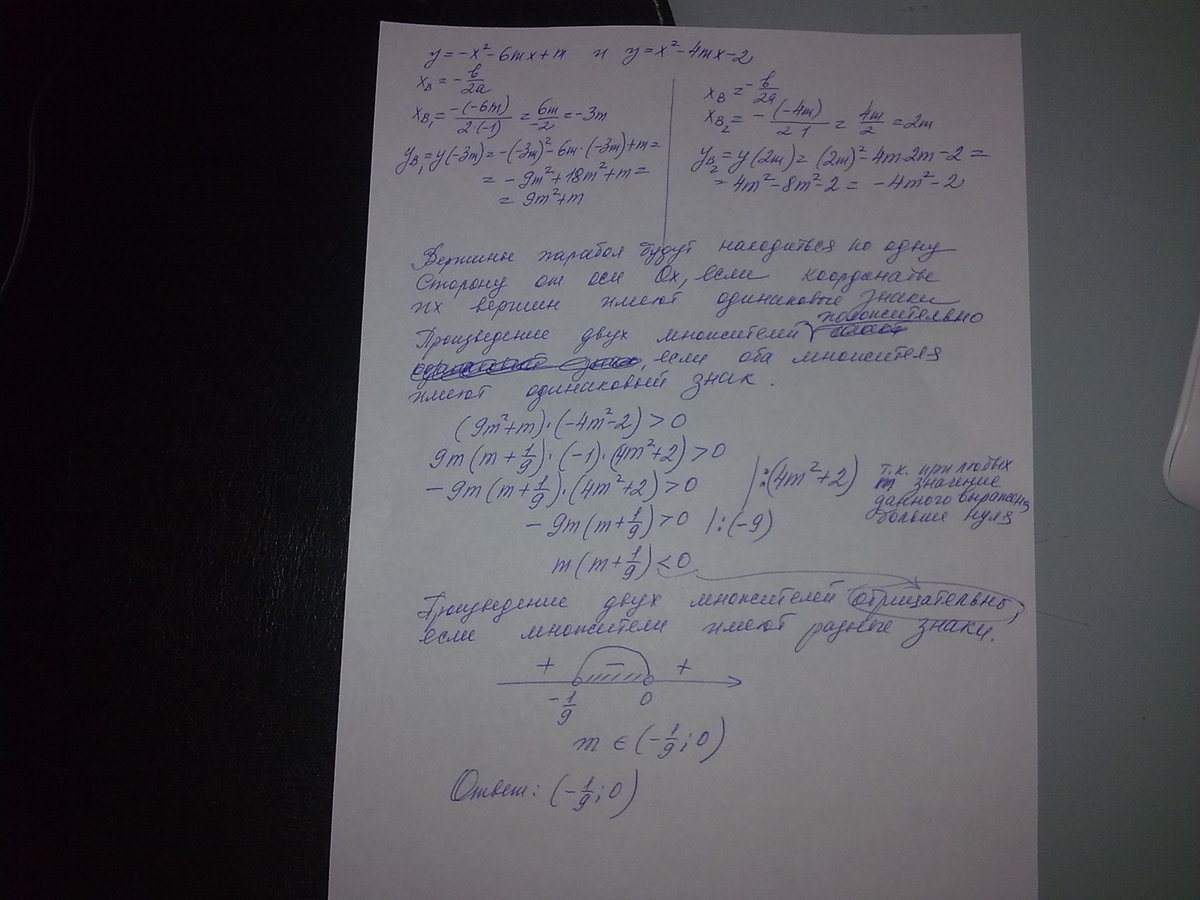 y = -x² - 6mx + m и y = x² - 4mx - 2
x_B = -b/2a
x_B₁ = -(-6m)/2·(-1) = 6m/-2 = -3m
y_B₁ = y(-3m) = -(-3m)² - 6m·(-3m) + m =
= -9m² + 18m² + m =
= 9m² + m
x_B = -b/2a
x_B₂ = -(-4m)/2·1 = 4m/2 = 2m
y_B₂ = y(2m) = (2m)² - 4m·2m - 2 =
= 4m² - 8m² - 2 = -4m² - 2
Вершины парабол будут находиться по одну
сторону от оси Ox, если координаты
их вершин имеют одинаковые знаки
Произведение двух множителей положительно
, если оба множителя
имеют одинаковый знак.
(9m² + m)·(-4m² - 2) > 0
9m(m + 1/9)·(-1)·(4m² + 2) > 0
-9m(m + 1/9)·(4m² + 2) > 0 |:(4m² + 2) т.к. при любых
m значение
данного выражения
больше нуля
-9m(m + 1/9) > 0 |:(-9)
m(m + 1/9) < 0
Произведение двух множителей отрицательно,
если множители имеют разные знаки.
+ - +
-1/9 0
m ∈ (-1/9; 0)
Ответ: (-1/9; 0)